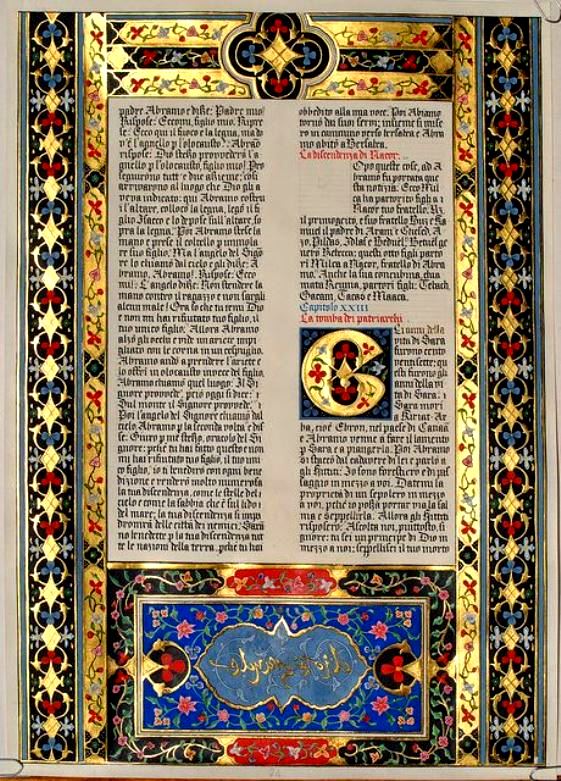 padre Abramo e disse: Padre mio!
Rispose: Eccomi, figlio mio. Ripre
se: Ecco qui il fuoco e la legna, ma do
v'è l'agnello p l'olocausto? Abraā
rispose: Dio stesso provvederà l'a
gnello p l'olocausto, figlio mio! Pro
seguirono tutt' e due assieme; così
arrivarono al luogo che Dio gli a
veva indicato: qui Abramo costruì
l'altare, collocò la legna, legò il fi
glio Isacco e lo depose sull'altare, so
pra la legna. Poi Abramo stese la
mano e prese il coltello p immola
re suo figlio. Ma l'angelo del Sigō
re lo chiamò dal cielo e gli disse: A
bramo, Abramo!. Rispose: Ecco
mi!. L'angelo disse: Non stendere la
mano contro il ragazzo e non fargli
alcun male! Ora so che tu temi Dio
e non mi hai rifiutato tuo figlio, il
tuo unico figlio. Allora Abramo
alzò gli occhi e vide un ariete impi
gliato con le corna in un cespuglio.
Abramo andò a prendere l'ariete e
lo offrì in olocausto invece del figlio.
Abramo chiamò quel luogo: Il Si
gnore provvede, pciò oggi si dice:
Sul monte il Signore provvede.
Poi l'angelo del Signore chiamò dal
cielo Abramo p la seconda volta e dis
se: Giuro p me stesso, oracolo del Si
gnore: pché tu hai fatto questo e non
mi hai rifiutato tuo figlio, il tuo uni
co figlio, io ti benedirò con ogni bene
dizione e renderò molto numerosa
la tua discendenza, come le stelle del
cielo e come la sabbia che è sul lido
del mare; la tua discendenza si impa
dronirà delle città dei nemici. Sarā
no benedette p la tua discendenza tut
te le nazioni della terra, pché tu hai
obbedito alla mia voce. Poi Abramo
tornò dai suoi servi; insieme si mise
ro in cammino verso Bersabea e Abra
mo abitò a Bersabea.
La discendenza di Nacor.
Dopo queste cose, ad A
bramo fu portata que
sta notizia: Ecco Mil
ca ha partorito figli a
Nacor tuo fratello. Uz,
il primogenito, e suo fratello Buz e Ka
muel il padre di Aram e Chesed, A
zo, Pildas, Jdlaf e Betuel. Betuel ge
nerò Rebecca: questi otto figli partorì
Milca a Nacor, fratello di Abra
mo. Anche la sua concubina, chia
mata Reuma, partorì figli: Tebach,
Gacam, Tacas e Maaca.
Capitolo XXIII
La tomba dei patriarchi
Gli anni della
vita di Sara
furono cento
ventisette; que
sti furono gli
anni della vi
ta di Sara.
Sara morì
a Kiriat-Ar
ba, cioè Ebron, nel paese di Canaan
e Abramo venne a fare il lamento
p Sara e a piangerla. Poi Abramo
si staccò dal cadavere di lei e parlò a
gli Hittiti: Io sono forestiero e di pas
saggio in mezzo a voi. Datemi la
proprietà di un sepolcro in mezzo
a voi, pché io possa portar via la sal
ma e seppellirla. Allora gli Hittiti
risposero: Ascolta noi, piuttosto, si
gnore: tu sei un principe di Dio in
mezzo a noi: seppellisci il tuo morto